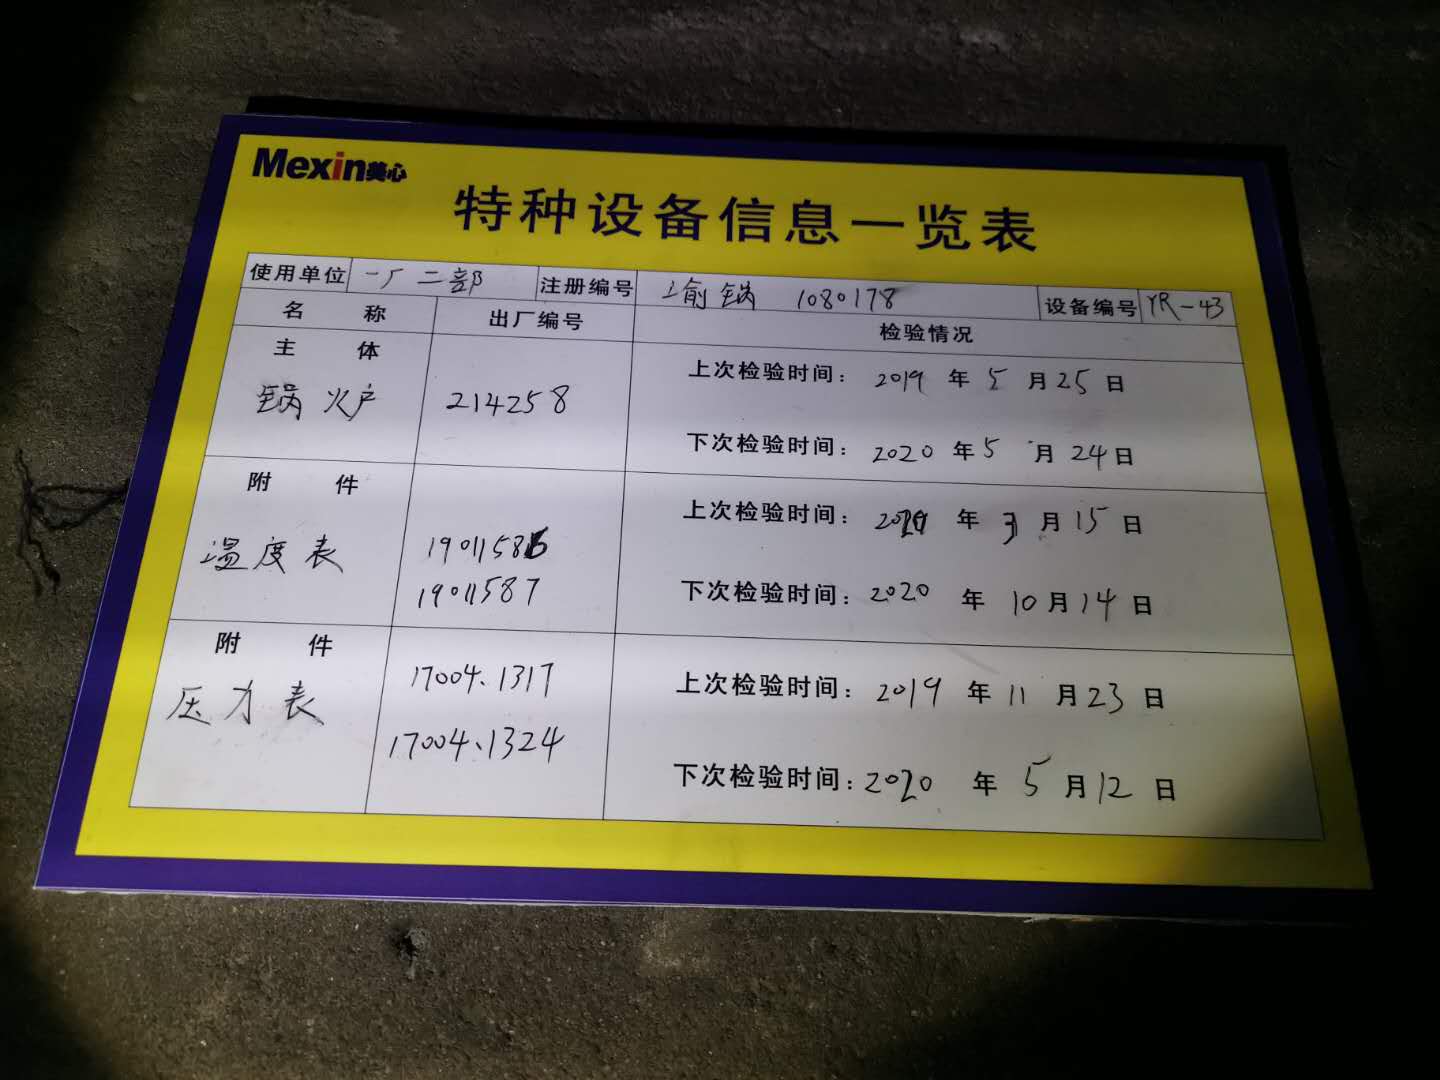 Mexin美心
特种设备信息一览表
使用单位 一厂二部 注册编号 渝锅 1080178 设备编号 YR-43
名 称 出厂编号 检验情况
主 体
锅炉 214258
上次检验时间: 2019 年 5 月 25 日
下次检验时间: 2020 年 5 月 24 日
附 件
温度表
19011586
19011587
上次检验时间: 年 月 15 日
下次检验时间: 2020 年 10 月 14 日
附 件
压力表
17004.1317
17004.1324
上次检验时间: 2019 年 11 月 23 日
下次检验时间: 2020 年 5 月 12 日